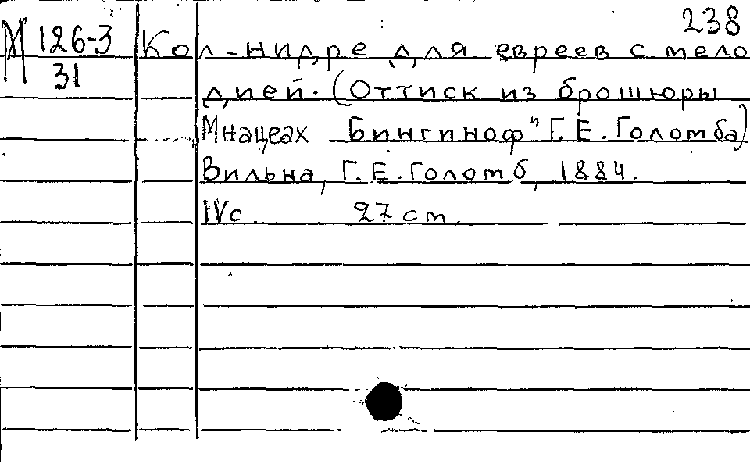 238
М 126-3
31
Кол-нидре для евреев с мело
дией. (Оттиск из брошюры
Мнацеах Бингиноф" Г.Е. Голомба)
Вильна, Г.Е. Голомб, 1884.
IVс. 27 cm.